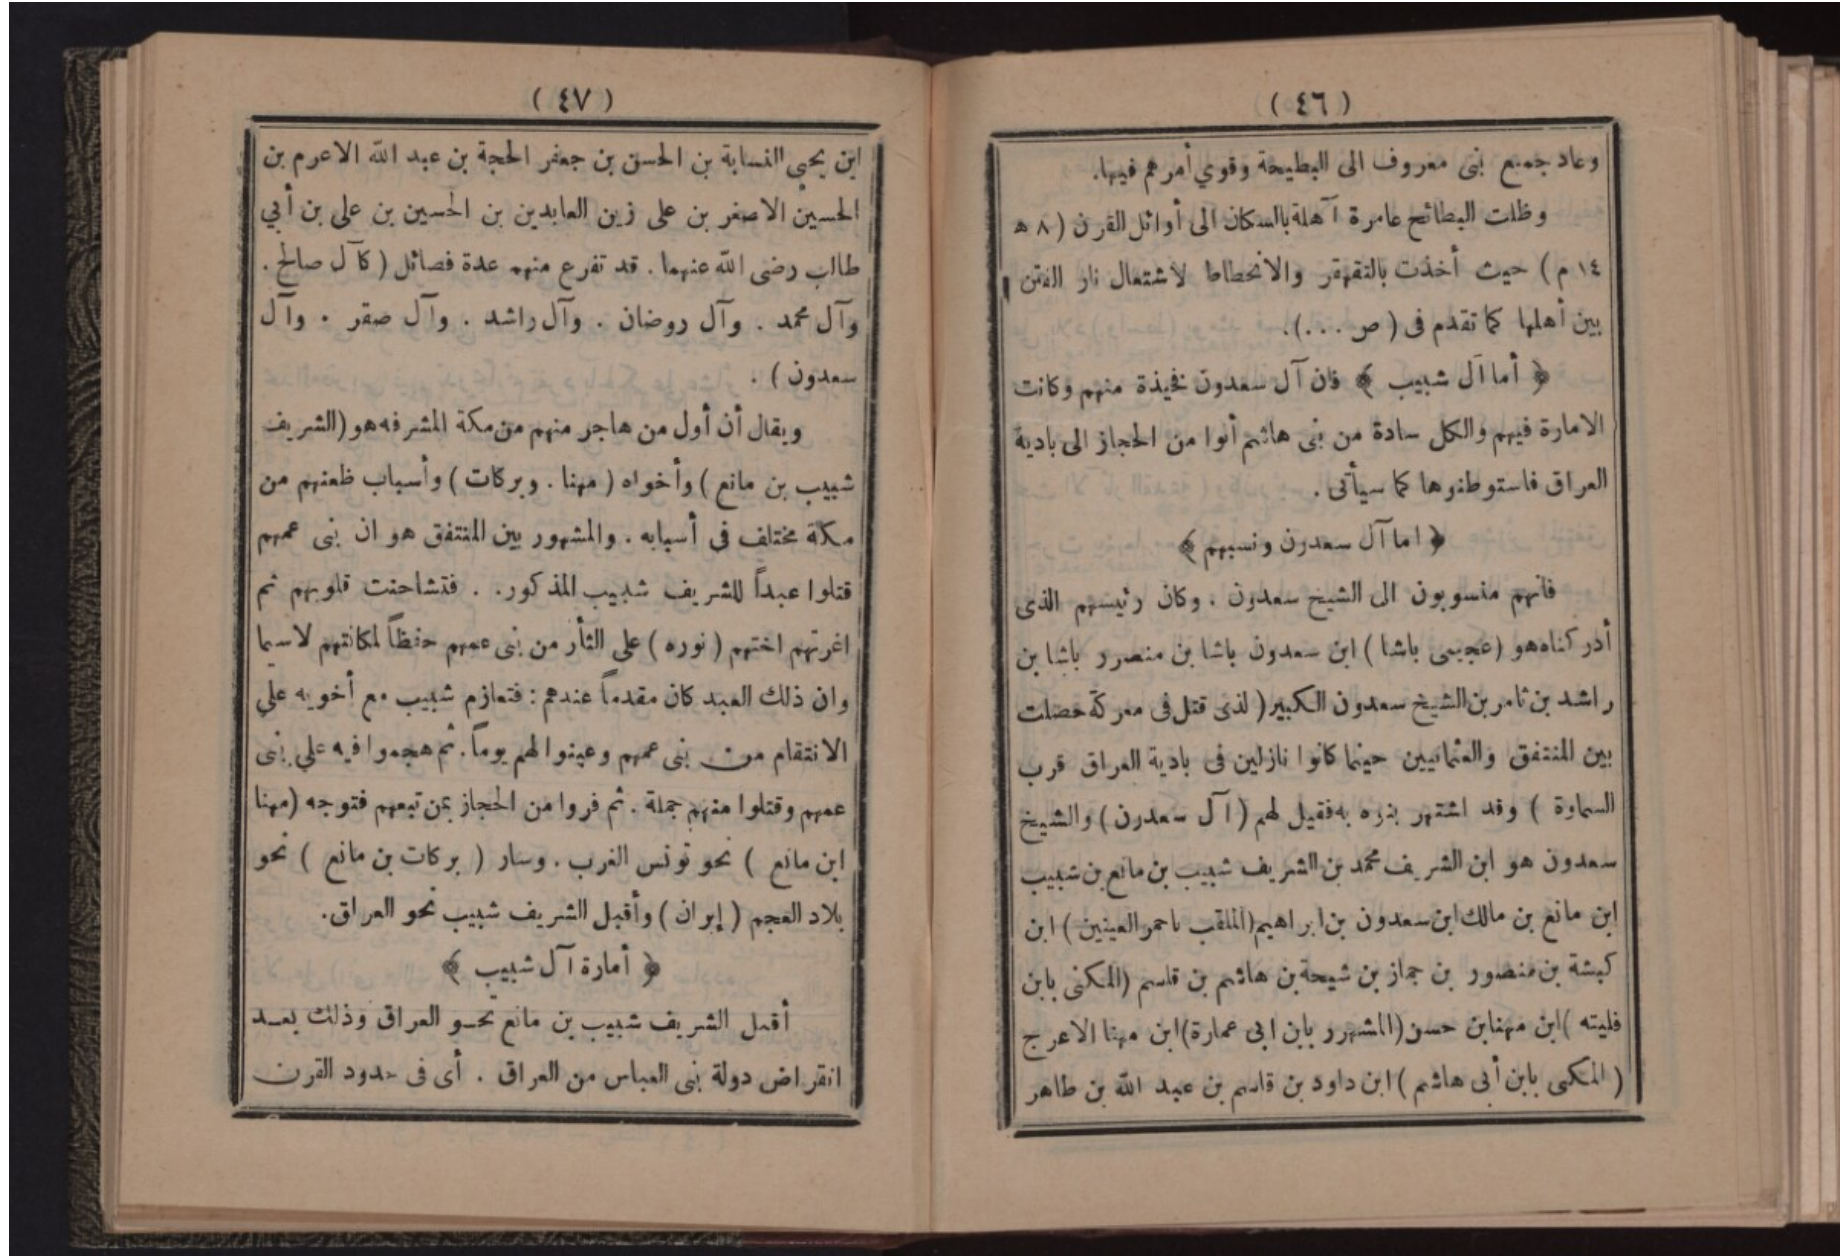 ( ٤٦ )
وعاد جميع بنى معروف الى البطيحة وقوي أمرهم فيها.
وظلت البطائح عامرة آهلة بالسكان الى أوائل القرن ( ٨ ه
١٤ م ) حيث أخذت بالتقهقر والانحطاط لاشتعال نار الفتن
بين أهلها كما تقدم فى ( ص ٠٠٠ ).
﴿ أما آل شبيب ﴾ فان آل سعدون فخيذة منهم وكانت
الامارة فيهم والكل سادة من بنى هاشم أتوا من الحجاز الى بادية
العراق فاستوطنوها كما سيأتى .
﴿ اما آل سعدون ونسبهم ﴾
فانهم منسوبون الى الشيخ سعدون . وكان رئيسهم الذى
أدركناه هو ( عجيمى باشا ) ابن سعدون باشا بن منصور باشا بن
راشد بن ثامر بن الشيخ سعدون الكبير ( لذى قتل فى معركة حصلت
بين المنتفق والعثمانيين حينما كانوا نازلين فى بادية العراق قرب
السماوة ) وقد اشتهر بنوه به فقيل لهم ( آل سعدون ) والشيخ
سعدون هو ابن الشريف محمد بن الشريف شبيب بن مانع بن شبيب
ابن مانع بن مالك ابن سعدون بن ابراهيم ( الملقب باحمر العينين ) ابن
كبشة بن منصور بن جماز بن شيحة بن هاشم بن قاسم ( المكنى بابن
فليته ) ابن مهنا بن حسن ( المشهور بابن ابى عمارة ) ابن مهنا الاعرج
( المكنى بابن أبى هاشم ) ابن داود بن قاسم بن عبيد الله بن طاهر
( ٤٧ )
ابن يحيى النسابة بن الحسن بن جعفر الحجة بن عبد الله الاعرم بن
الحسين الاصغر بن على زين العابدين بن الحسين بن على بن أبي
طالب رضى الله عنهما . قد تفرع منهم عدة فصائل ( كآل صالح .
وآل محمد . وآل روضان . وآل راشد . وآل صقر . وآل
سعدون ) .
ويقال أن أول من هاجر منهم من مكة المشرفه هو ( الشريف
شبيب بن مانع ) وأخواه ( مهنا . وبركات ) وأسباب ظعنهم من
مكة مختلف فى أسبابه . والمشهور بين المنتفق هو ان بنى عمهم
قتلوا عبداً للشريف شبيب المذكور. . فتشاحنت قلوبهم ثم
اغرتهم اختهم ( نوره ) على الثأر من بنى عمهم حفظاً لمكانتهم لاسيما
وان ذلك العبد كان مقدماً عندهم : فتعازم شبيب مع أخويه علي
الانتقام من بنى عمهم وعينوا لهم يوماً . ثم هجموا فيه علي بنى
عمهم وقتلوا منهم جملة . ثم فروا من الحجاز بمن تبعهم فتوجه ( مهنا
ابن مانع ) نحو تونس الغرب . وسار ( بركات بن مانع ) نحو
بلاد العجم ( إيران ) وأقبل الشريف شبيب نحو العراق.
﴿ أمارة آل شبيب ﴾
أقبل الشريف شبيب بن مانع نحو العراق وذلك بعد
انقراض دولة بنى العباس من العراق . أى فى حدود القرن